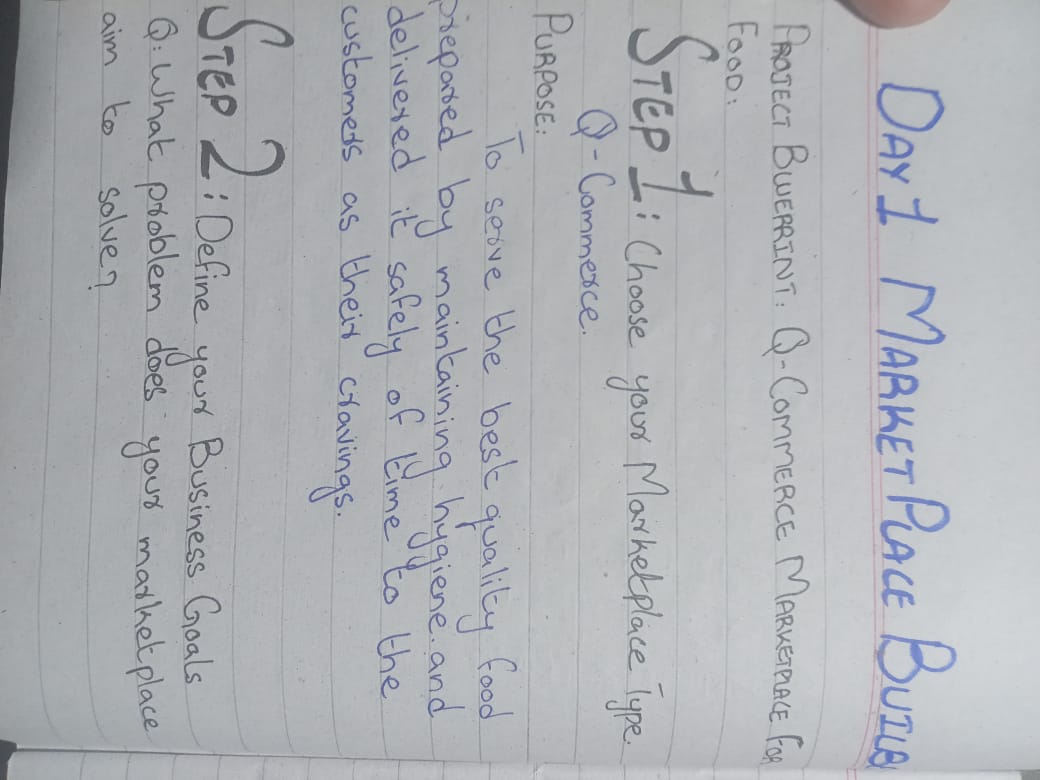 DAY 1 MARKET PLACE BUILD
PROJECT BLUEPRINT: Q-COMMERCE MARKETPLACE FOR
FOOD:
STEP 1: Choose your Marketplace Type.
Q-Commerce.
PURPOSE:
To serve the best quality food
prepared by maintaining hygiene and
delivered it safely of time to the
customers as their cravings.
STEP 2: Define your Business Goals
Q: What problem does your marketplace
aim to solve?